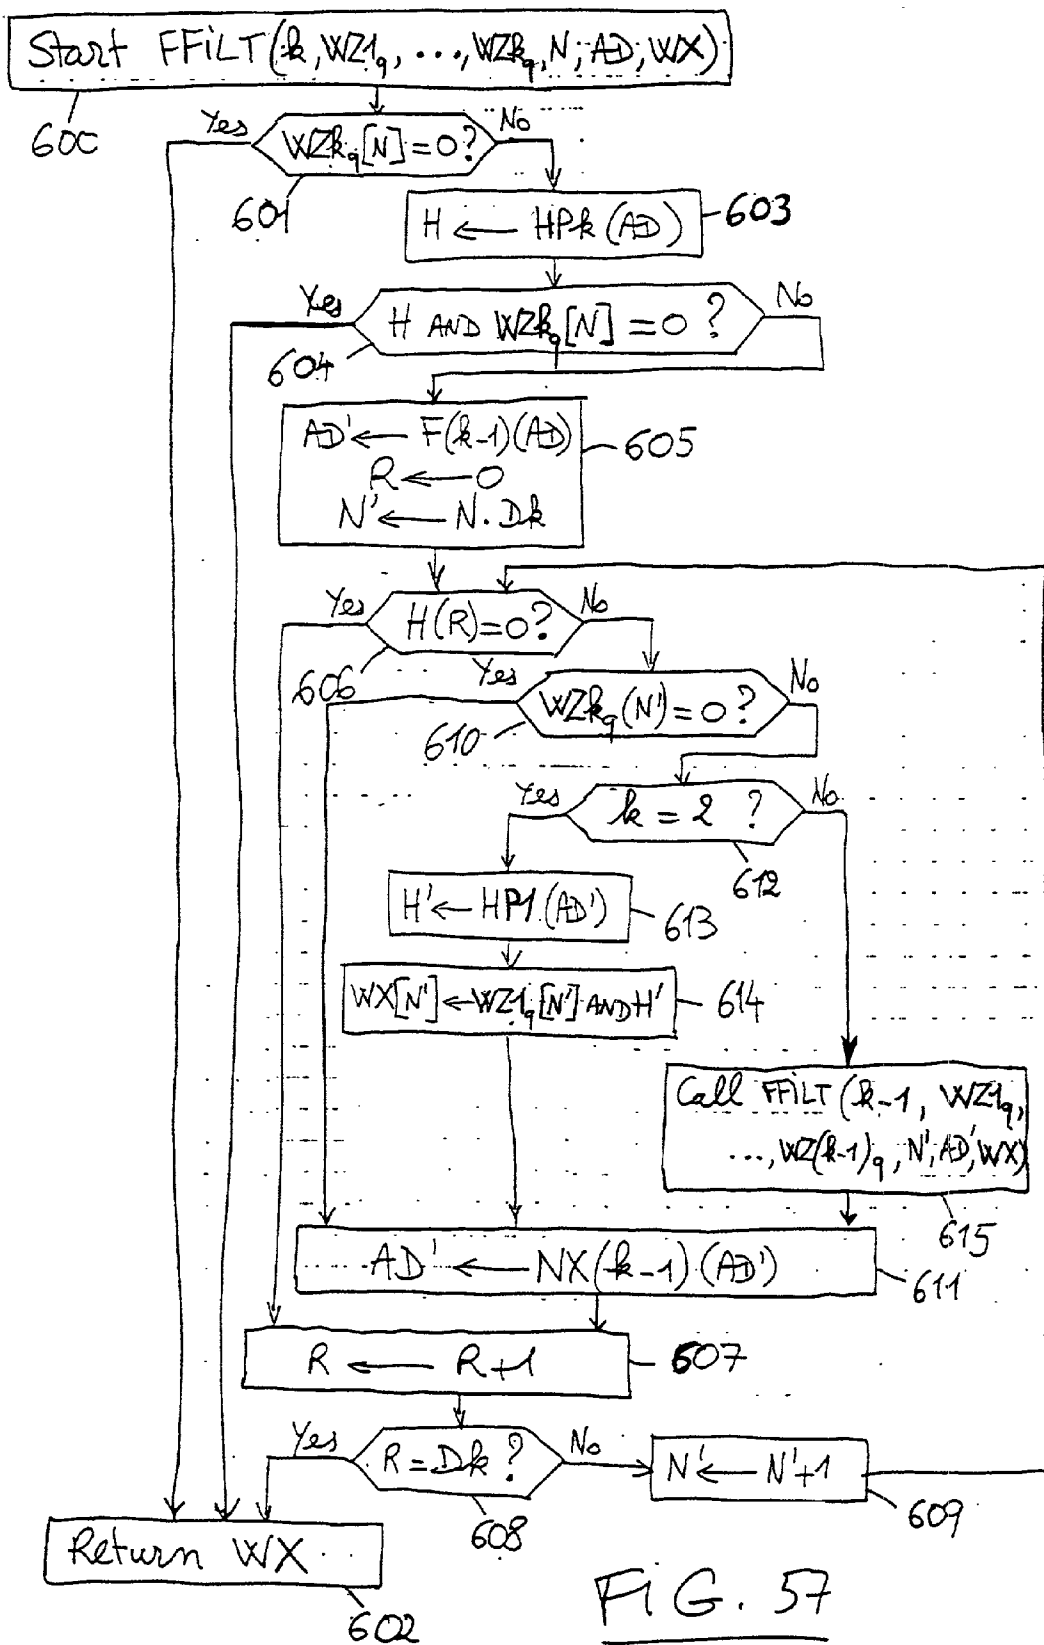 Start FFiLT(k, WZ1q, ..., WZkq, N; AD; WX)
600
Yes
WZkq[N] = 0?
No
601
H ← HPk(AD)
603
Yes
H AND WZkq[N] = 0 ?
No
604
AD' ← F(k-1)(AD)
R ← 0
N' ← N . Dk
605
Yes
H(R)=0?
No
606
Yes
WZkq(N')=0?
No
610
Yes
k = 2 ?
No
612
H' ← HP1.(AD')
613
WX[N'] ← WZ1q[N'] AND H'
614
Call FFILT(k-1, WZ1q,
..., WZ(k-1)q, N', AD', WX)
615
AD' ← NX(k-1)(AD')
611
R ← R+1
607
Yes
R = Dk ?
No
608
N' ← N'+1
609
Return WX
602
FiG. 57